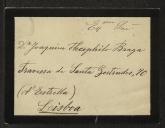 Ex.mo Snr.
Dr. Joaquim Theophilo Braga
Travessa de Santa Gertrudes, 70
(á Estrella)
Lisboa